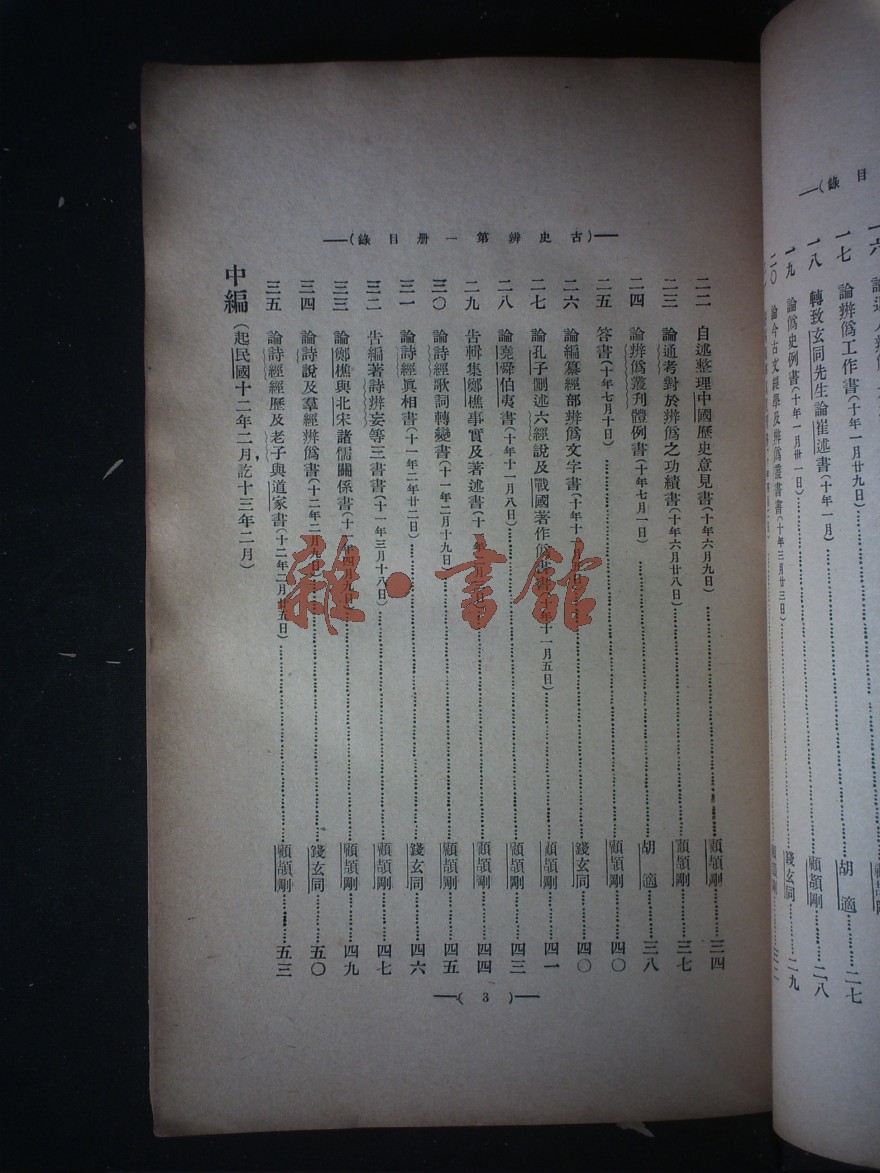 目錄
一七　論辨僞工作書(十年一月廿九日)……胡適……二七
一八　轉致玄同先生論崔述書(十年一月)……顧頡剛……二八
一九　論僞史例書(十年一月卅一日)……錢玄同……二九
二〇　論今古文經學及辨僞叢書書(十年三月廿三日)
——(古史辨第一册目錄)——
二二　自述整理中國歷史意見書(十年六月九日)……顧頡剛……三四
二三　論通考對於辨僞之功績書(十年六月廿八日)……顧頡剛……三七
二四　論辨僞叢刊體例書(十年七月一日)……胡適……三八
二五　答書(十年七月十日)……顧頡剛……四〇
二六　論編纂經部辨僞文字書(十年十一月日)……錢玄同……四〇
二七　論孔子刪述六經說及戰國著作僞書書(十年十一月五日)……顧頡剛……四一
二八　論堯舜伯夷書(十年十一月八日)……顧頡剛……四三
二九　告輯集鄭樵事實及著述書(十年月日)……顧頡剛……四四
三〇　論詩經歌詞轉變書(十一年二月十九日)……顧頡剛……四五
三一　論詩經眞相書(十一年二月廿二日)……錢玄同……四六
三二　告編著詩辨妄等三書書(十一年三月十八日)……顧頡剛……四七
三三　論鄭樵與北宋諸儒關係書(十一年四月九日)……顧頡剛……四九
三四　論詩說及羣經辨僞書(十二年二月九日)……錢玄同……五〇
三五　論詩經經歷及老子與道家書(十二年二月廿五日)……顧頡剛……五三
中編(起民國十二年二月，訖十三年二月)
——(3)——
雜·書館